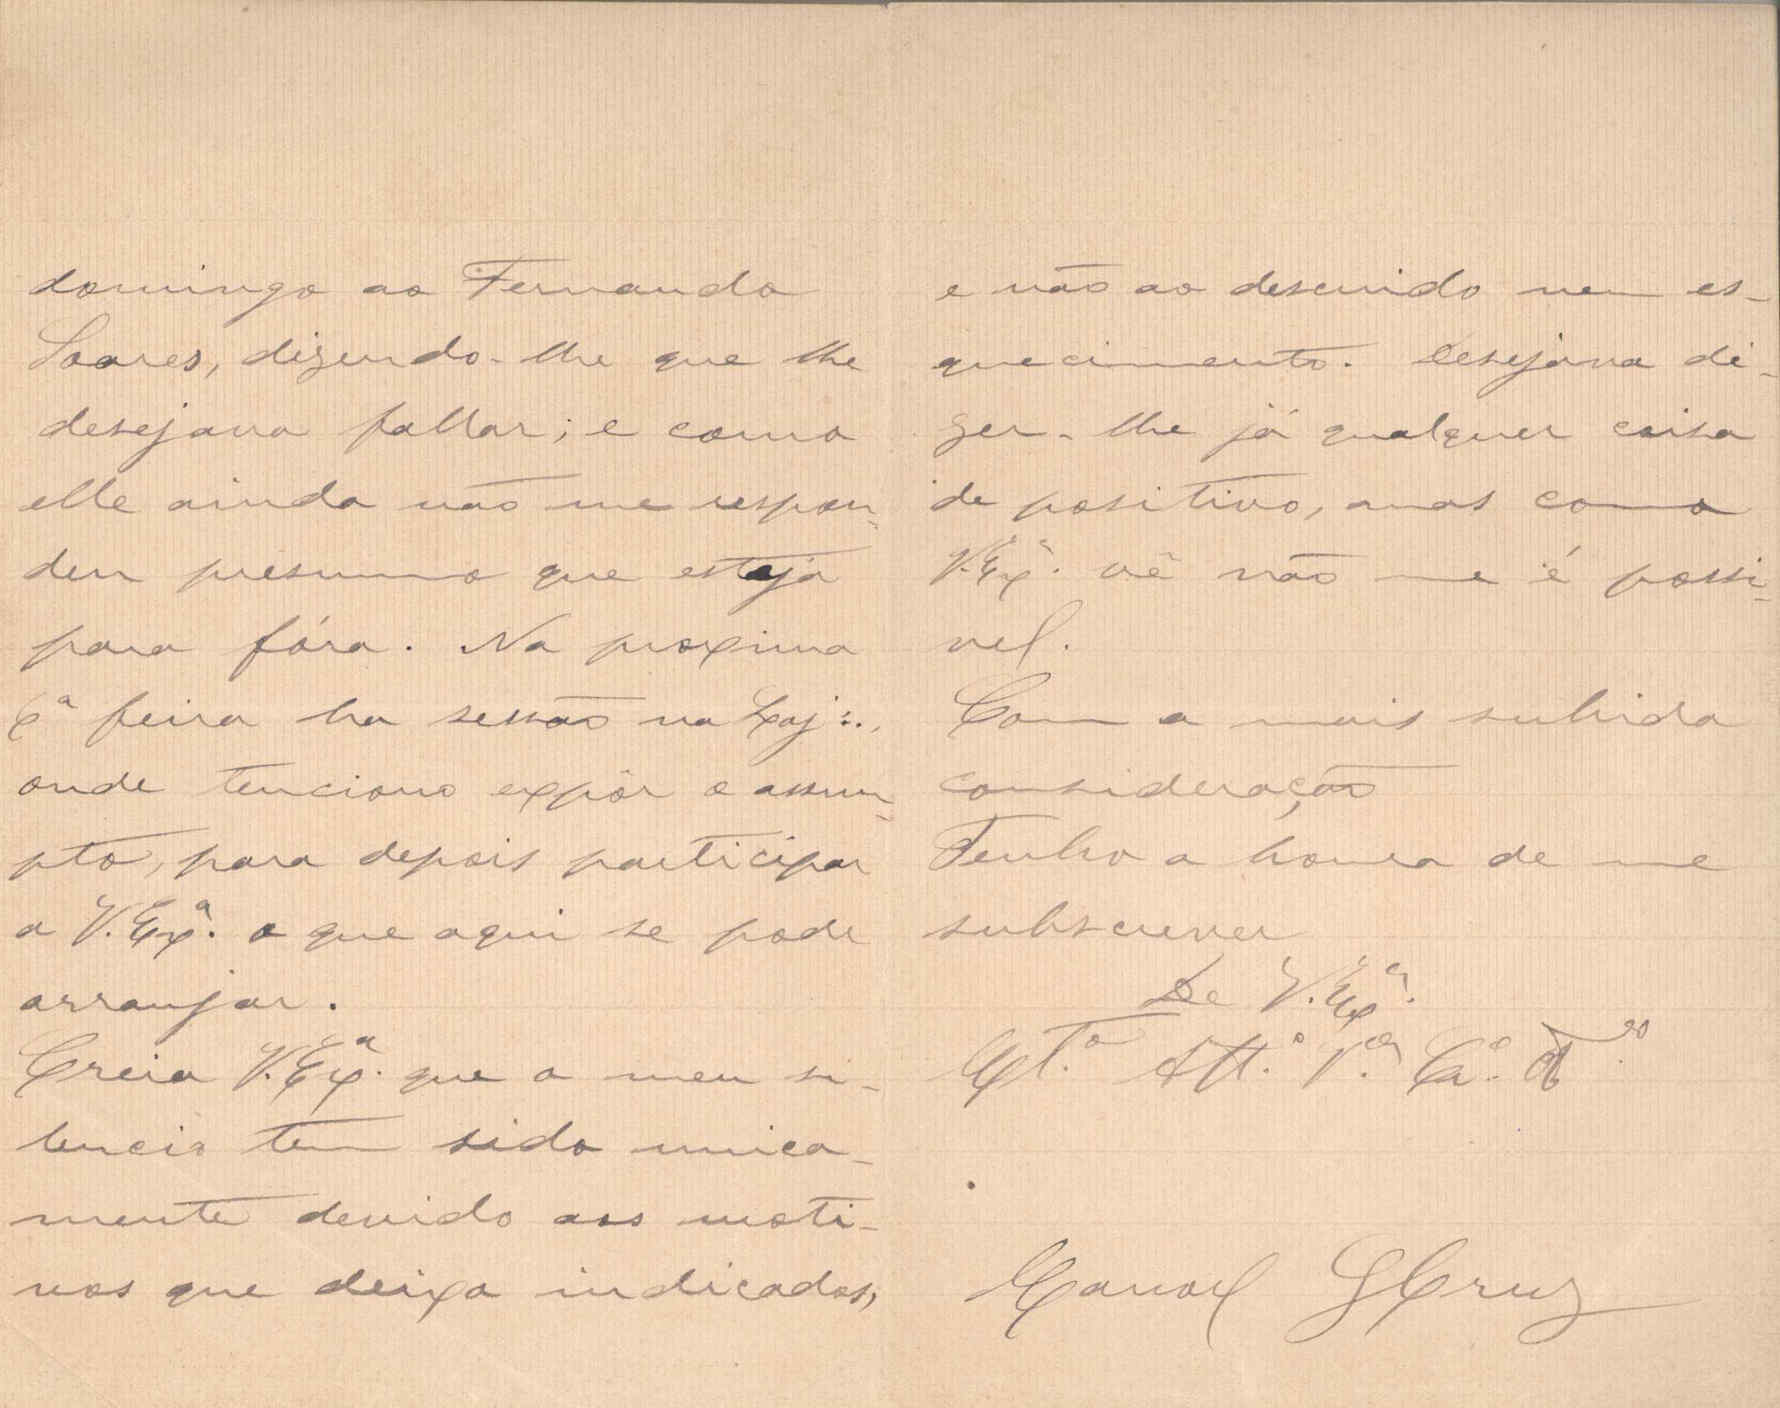 domingo ao Fernando
Soares, dizendo-lhe que lhe
desejava fallar; e como
elle ainda não me respon-
deu presumo que esteja
para fóra. Na proxima
6ª feira ha sessão na Loj∴,
onde tenciono expôr o assum-
pto, para depois participar
a V. Exª. o que aqui se pode
arranjar.
Creia V. Exª. que o meu si-
lencio tem sido unica-
mente devido aos moti-
vos que deixo indicados,
e não ao descuido nem es-
quecimento. Desejava di-
zer-lhe já qualquer coisa
de positivo, mas como
V. Exª. vê não me é possi-
vel.
Com a mais subida
consideração
Tenho a honra de me
subscrever
De V. Exª.
Mt.º Att.º V.ºr Cr.º
Manoel Cruz